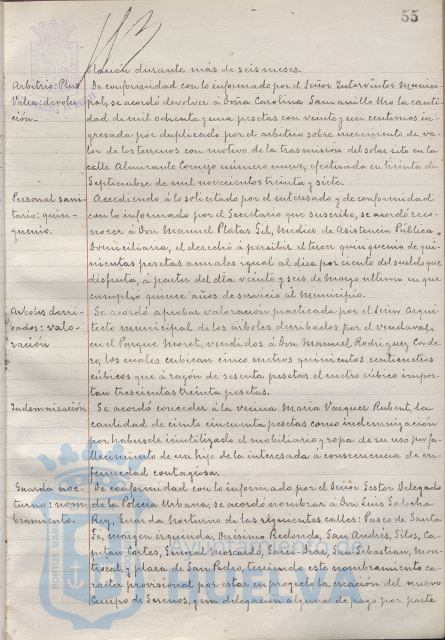 55
lación durante más de seis meses.
Arbitrio: Plus
Valía: devolu-
ción.-
De conformidad con lo informado por el Señor Interventor Munici-
pal, se acordó devolver á Doña Carolina Samanillo Uro la canti
dad de mil ochenta y una pesetas con veinte y un centimos in
gresada por duplicado por el arbitrio sobre incremento de va-
lor de los terrenos con motivo de la trasmision del solar sito en la
calle Almirante Cornejo número nueve, efectuada en treinta de
Septiembre de mil novecientos treinta y siete.
Personal sani-
tario: quin-
quenio.
Accediendo á lo solicitado por el interesado y de conformidad
con lo informado por el Secretario que suscribe, se acordó reco-
nocer á Don Manuel Platas Gil, Medico de Asistencia Pública
Domiciliaria, el derecho á percibir el tercer quinquenio de qui-
nientas pesetas anuales igual al diez por ciento del sueldo que
disfruta, á partir del día veinte y seis de Mayo ultimo en que
cumplió quince años de servicio al Municipio.
Arboles derri-
bados: valo-
ración
Se acordó aprobar valoración practicada por el Señor Arqui
tecto municipal de los arboles derribados por el vendaval,
en el Parque Moret, vendidos á Don Manuel Rodriguez Corde
ro, los cuales cubican cinco metros quinientos centimetros
cúbicos que á razón de sesenta pesetas el metro cúbico impor-
tan trescientas treinta pesetas.
Indemnización
Se acordó conceder á la vecina Maria Vazquez Rubent, la
cantidad de ciento cincuenta pesetas como indemnización
por habersele inutilizado el mobiliario y ropa de su uso por fa-
llecimiento de un hijo de la interesada á consecuencia de en-
fermedad contagiosa.
Guarda noc-
turno: nom-
bramiento.
De conformidad con lo informado por el Señor Gestor Delegado
de la Policia Urbana, se acordó nombrar á Don Luis
Rey, Guarda Nocturno de las siguientes calles: Paseo de Santa
Fe, margen izquierda, Onesimo Redondo, San Andrés, Silos, Ca-
pitan Cortes, General Moscardó, San Sebastian, Mon-
trocal, y plaza de San Pedro, teniendo este nombramiento ca-
racter provisional por estar en proyecto la creación del nuevo
Cuerpo de Serenos, y sin delegación alguna de pago por parte